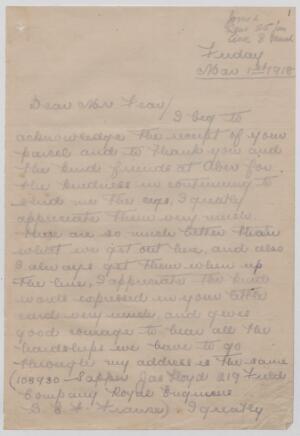 1
Friday
Mar 1st 1918
Dear Mr Fear/
I beg to
acknowledge the receipt of your
parcel and to thank you and
the kind friends at Aber for
the kindness in continuing to
send me the cigs, I greatly
appreciate them very much.
are so much better than
what we get out here, and also
I always get them when up
the line, I appreciate the kind
words expressed in your little
cards very much, and gives
good courage to bear all the
hardships we have to go
through my address is the same
(108930 Sapper Jas Lloyd 219 Field
Company Royal Engineers
B. E. F. France). I greatly